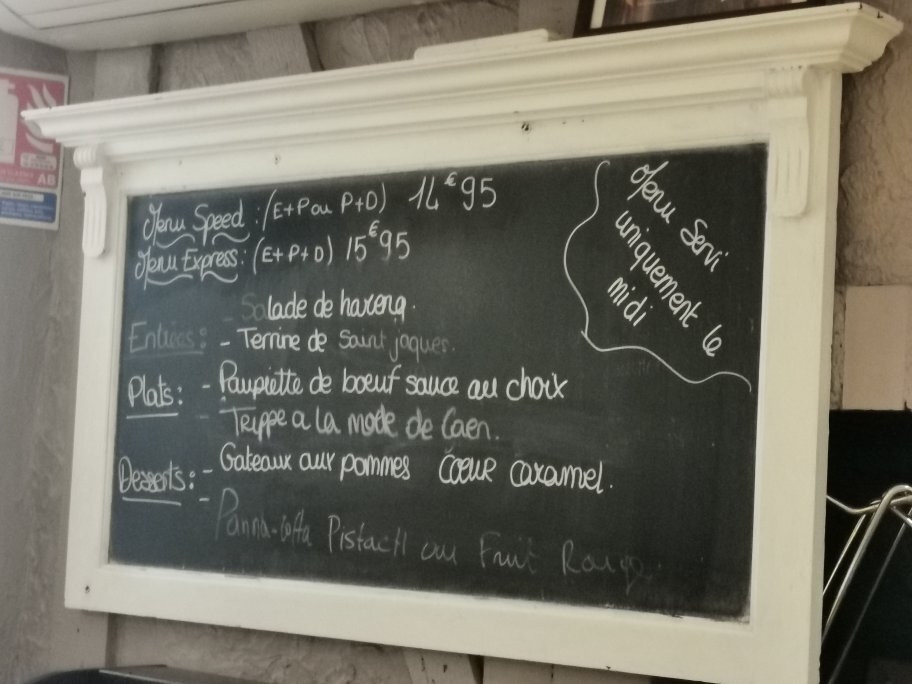 Menu Speed : (E+P ou P+D) 14€95
Menu Express : (E+P+D) 15€95
Menu Servi
uniquement le
midi
Entrées : - Salade de hareng.
- Terrine de Saint jaques.
Plats : - Paupiette de boeuf sauce au choix
- Trippe a la mode de Caen.
Desserts : - Gateaux aux pommes Cœur caramel.
- Panna-cotta Pistach ou Fruit Rouge.
AB